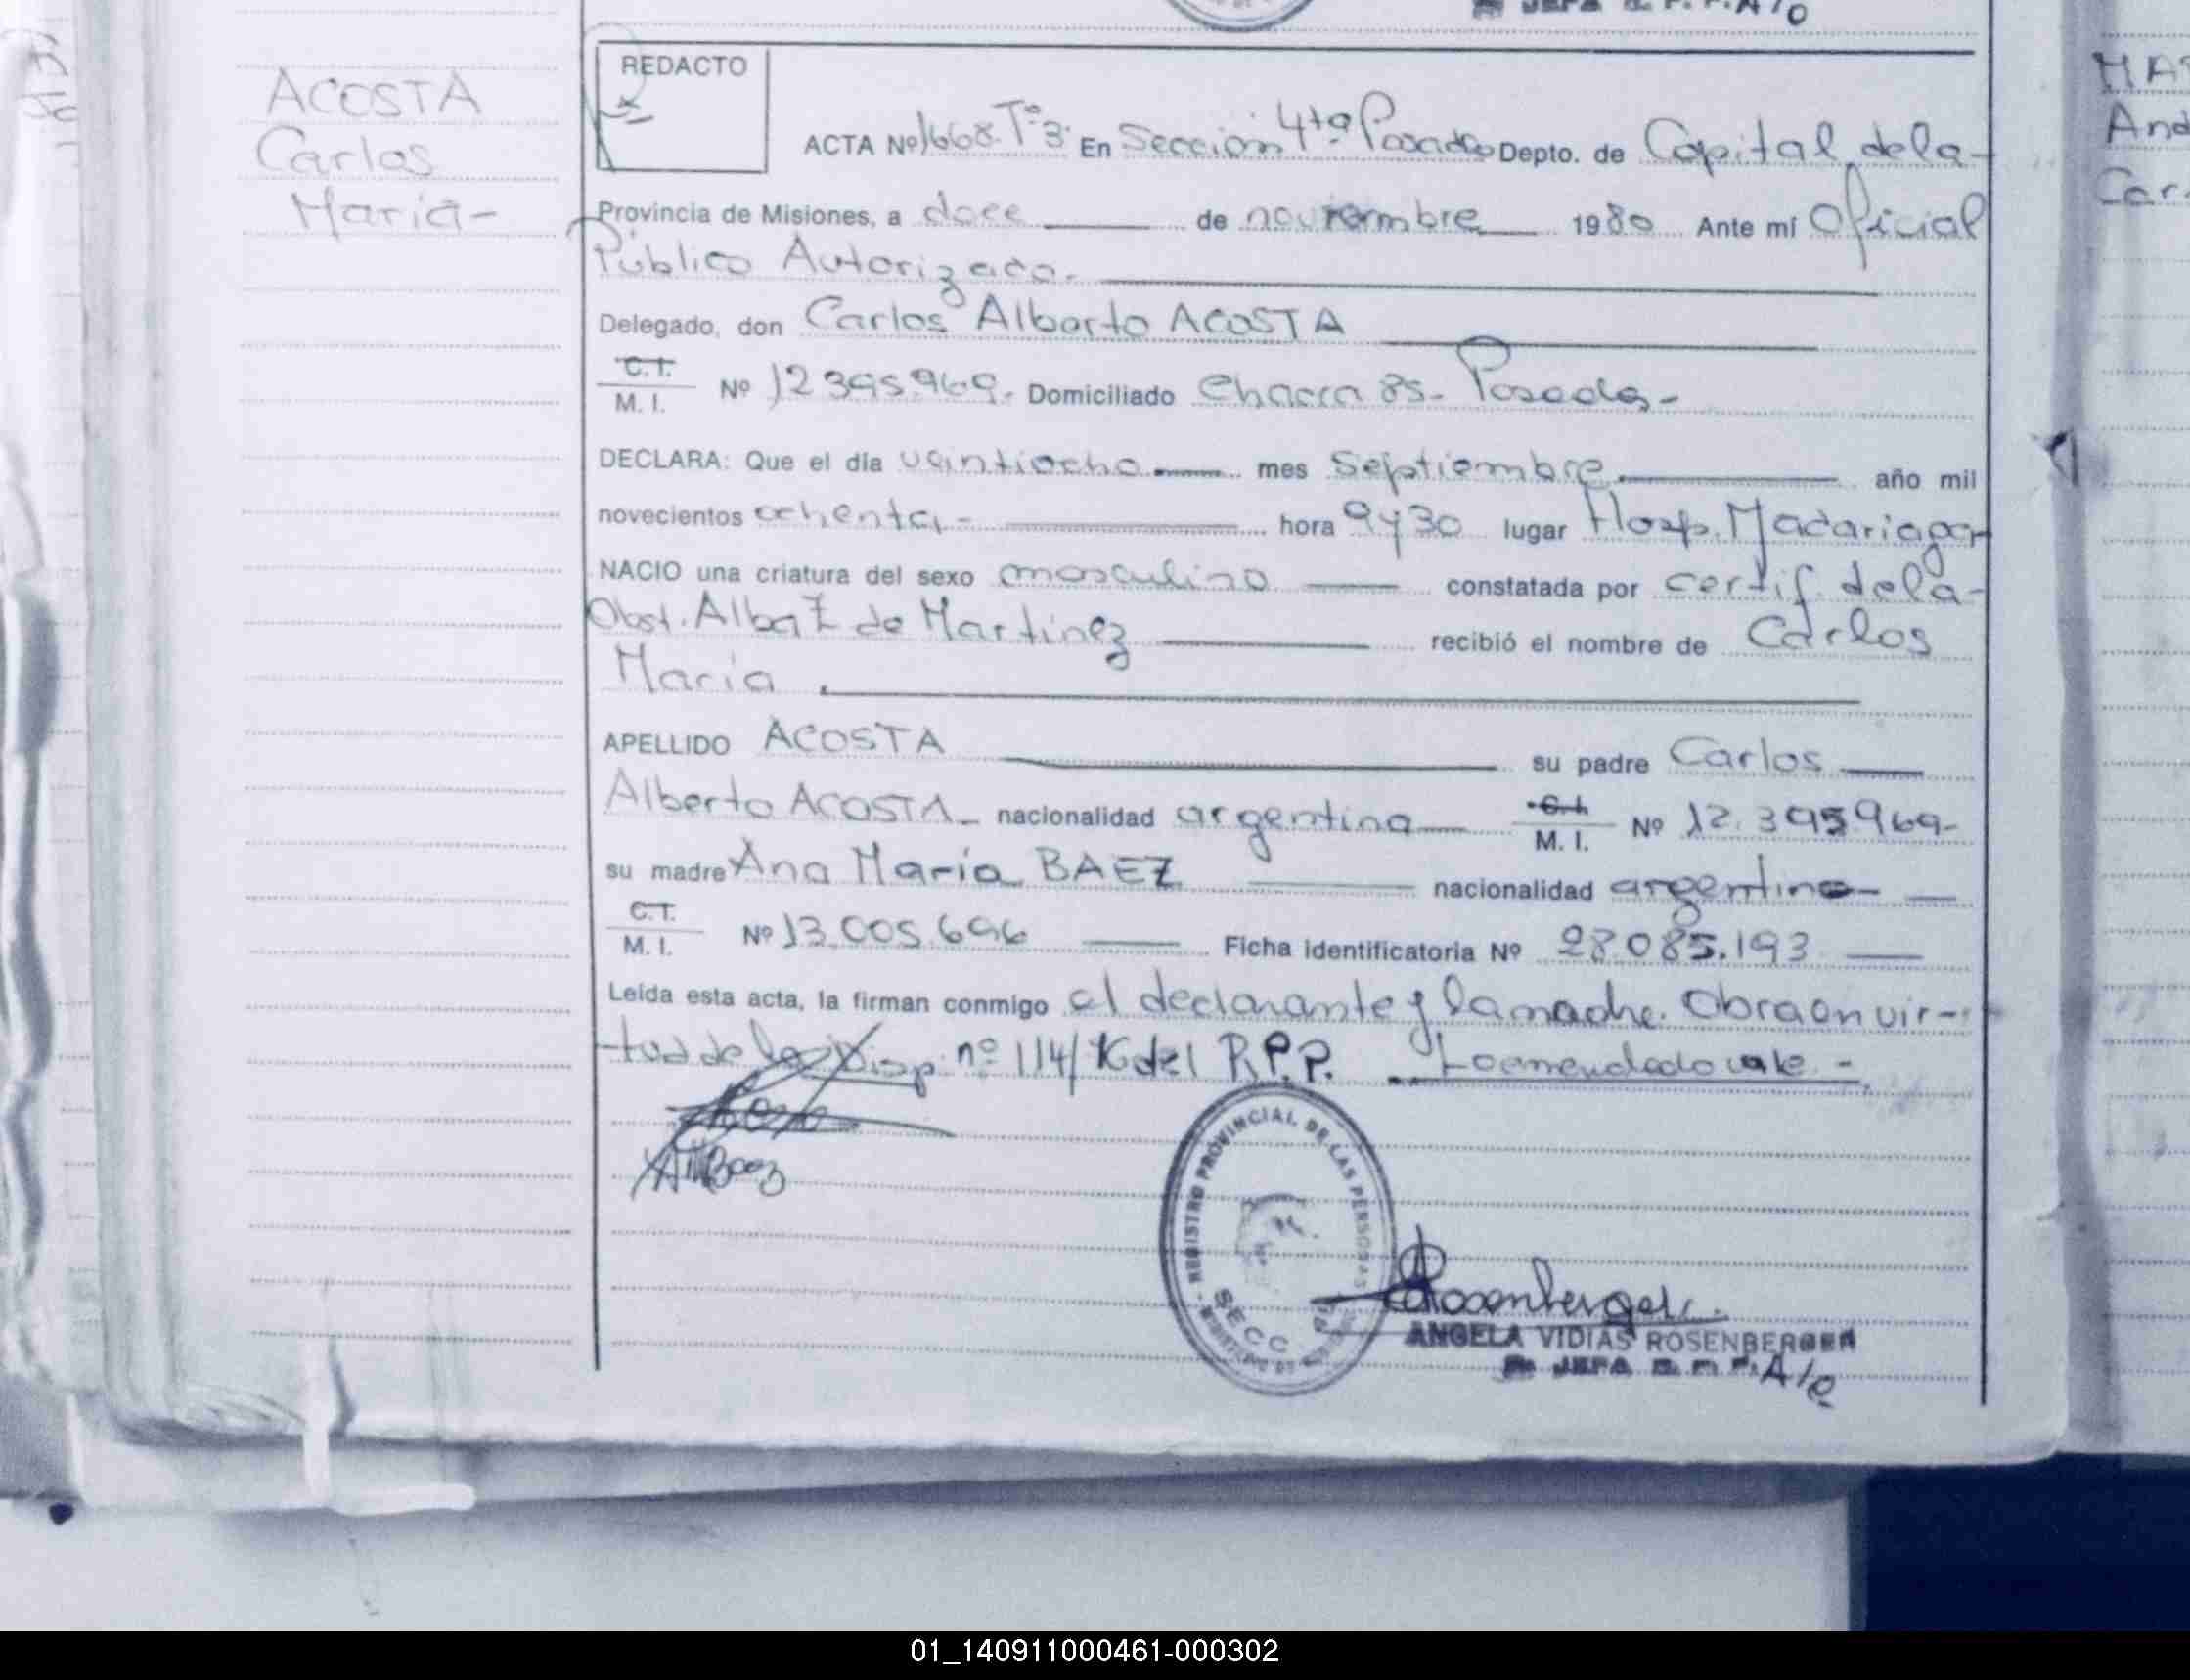 ACOSTA
Carlos
María-
REDACTO
ACTA Nº 1668. Tº3. En Sección 4ta Posadas Depto. de Capital, de la-
Provincia de Misiones, a doce de noviembre 1980 Ante mí Oficial
Público Autorizado.
Delegado, don Carlos Alberto ACOSTA
C.I.
M. I. Nº 12.395.969. Domiciliado Chacra 85- Posadas-
DECLARA: Que el día veintiocho mes Septiembre año mil
novecientos ochenta- hora 9 y 30 lugar Hosp. Madariaga-
NACIO una criatura del sexo masculino constatada por certif. de la-
Obst. Alba Z de Martinez recibió el nombre de Carlos
María.
APELLIDO ACOSTA su padre Carlos
Alberto ACOSTA- nacionalidad argentina C.I.
M. I. Nº 12.395.969-
su madre Ana María BAEZ nacionalidad argentina-
C.I.
M. I. Nº 13.005.696 Ficha identificatoria Nº 28.085.193
Leída esta acta, la firman conmigo el declarante y la madre. Obra en vir-
tud de la Disp. nº 114/76 del R.P.P. Lo enmendado vale.-
AMBaez
REGISTRO PROVINCIAL DE LAS PERSONAS
SECC
Rosenberger
ANGELA VIDIAS ROSENBERGER
JEFA A/c
01_140911000461-000302